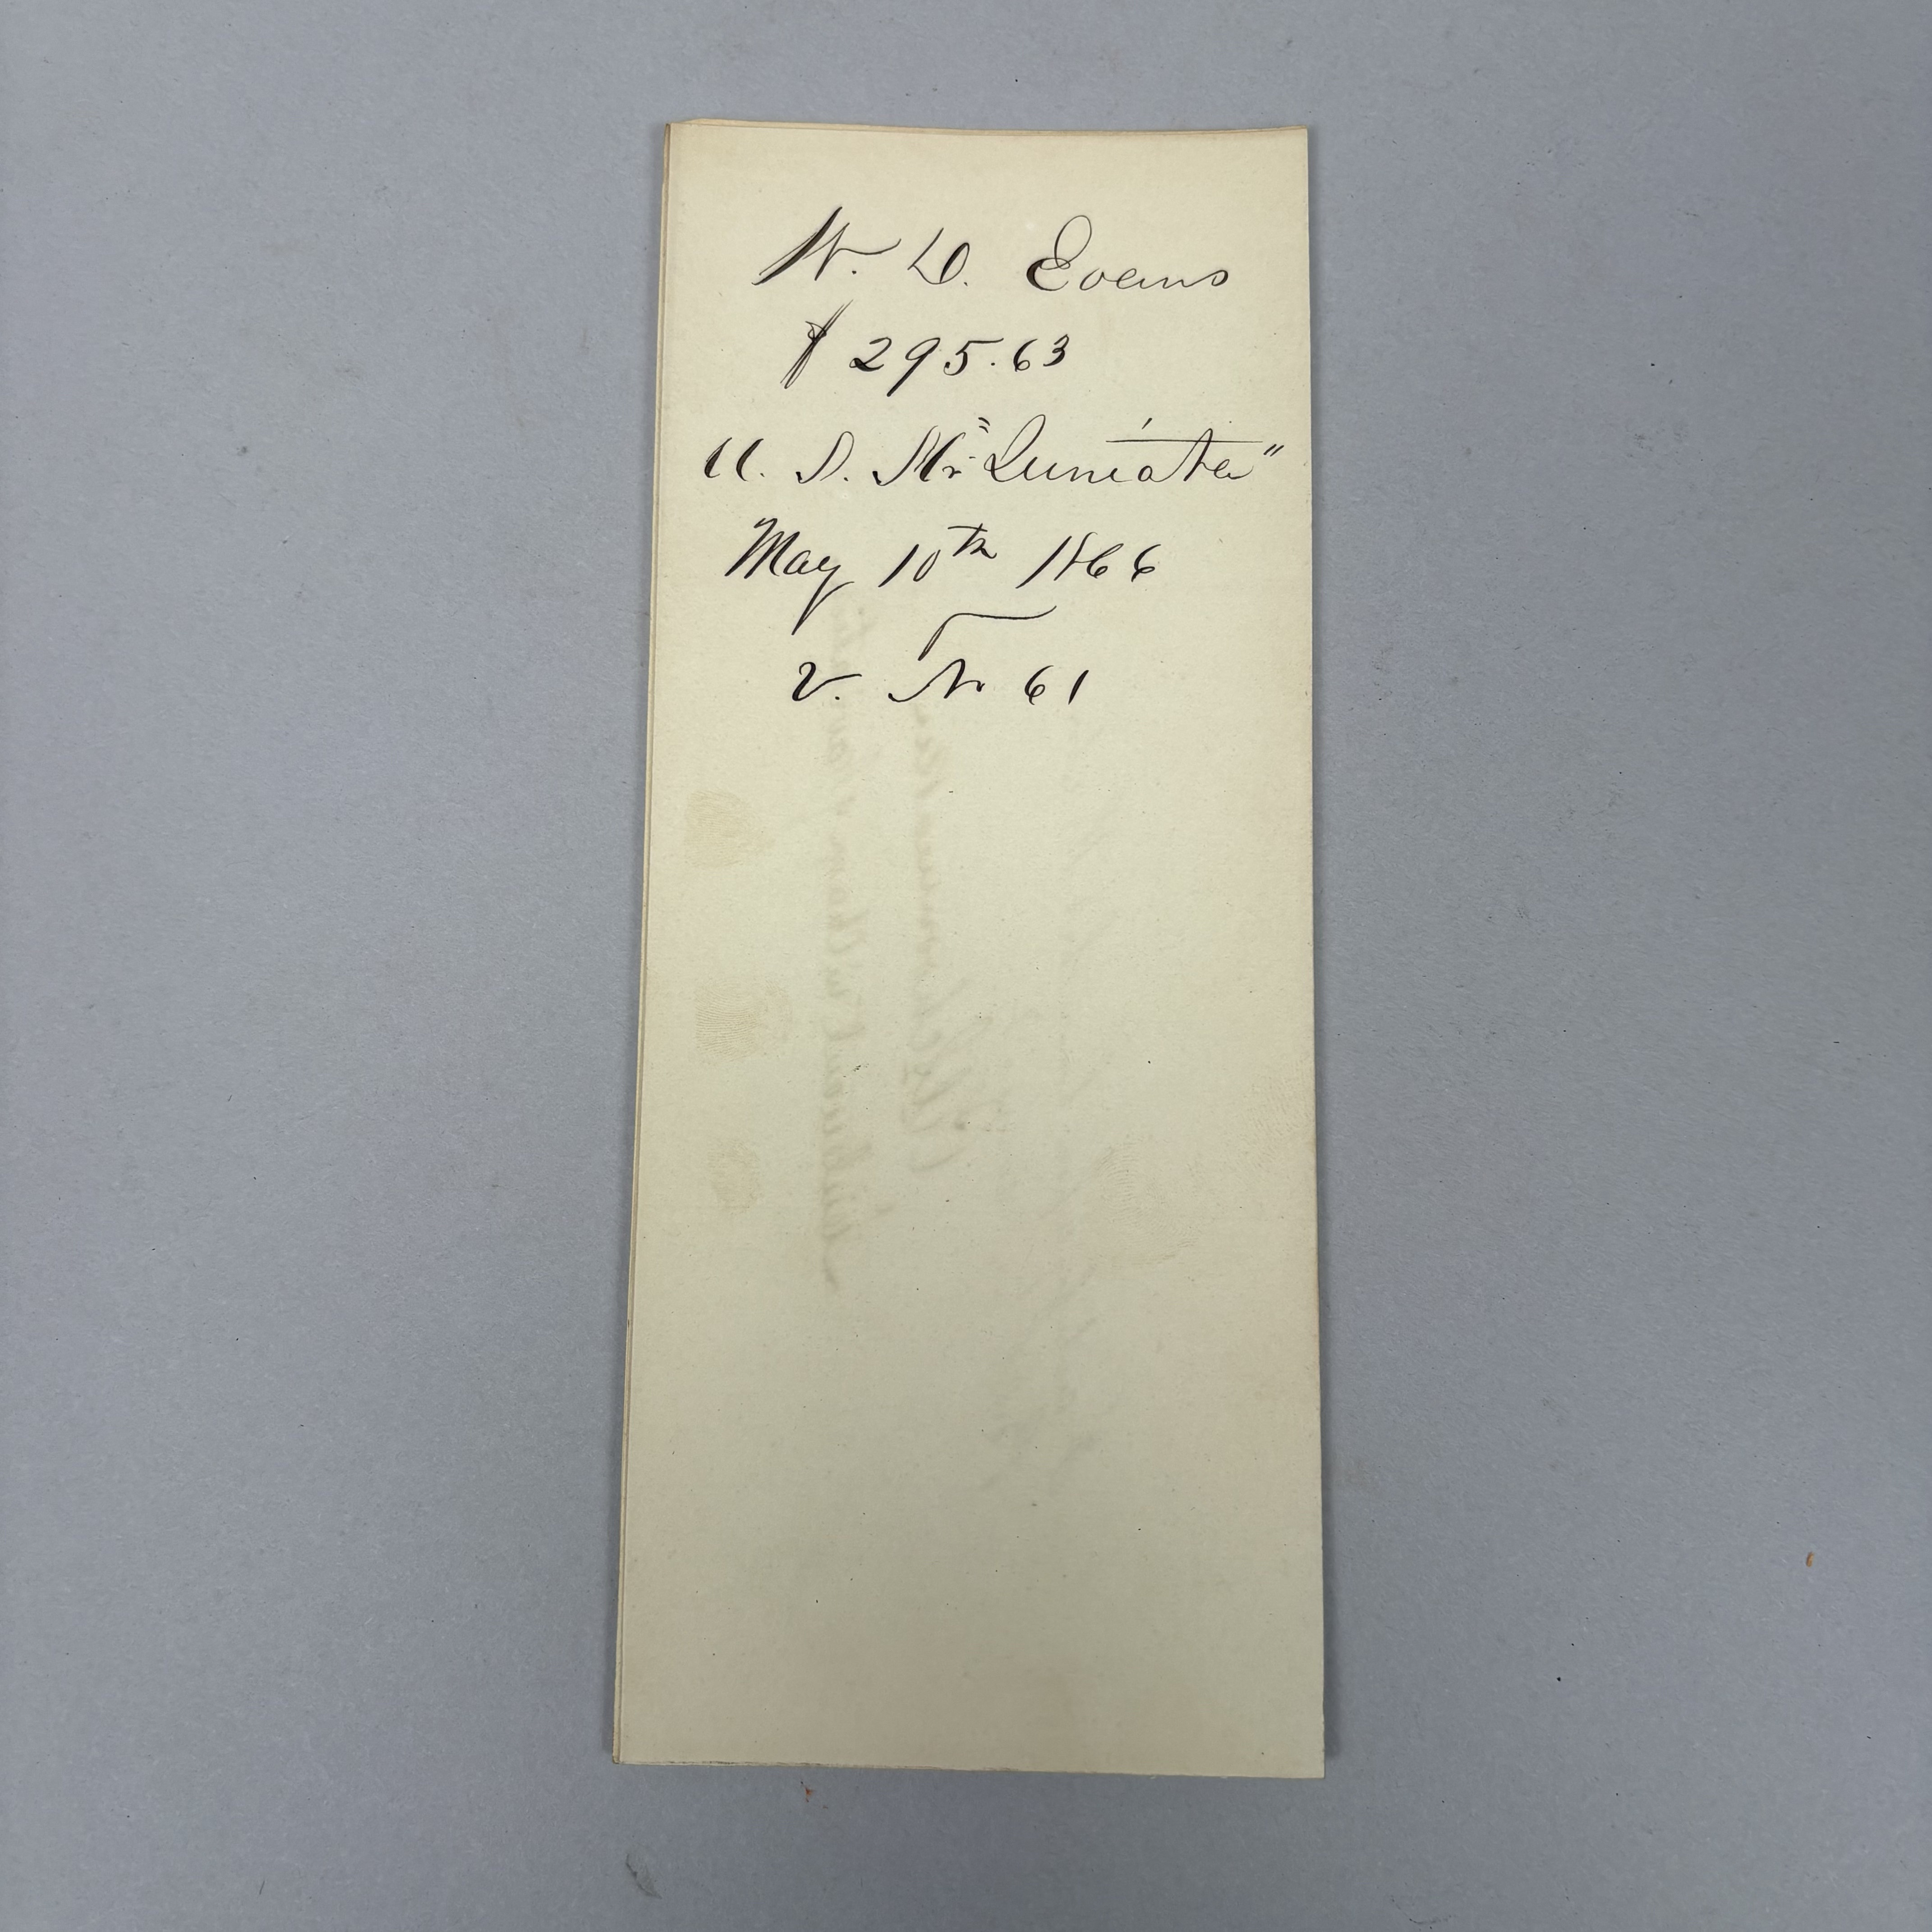 W. D. Evans
$ 295.63
U. S. Str "Juniata"
May 10th 1866
V. No 61